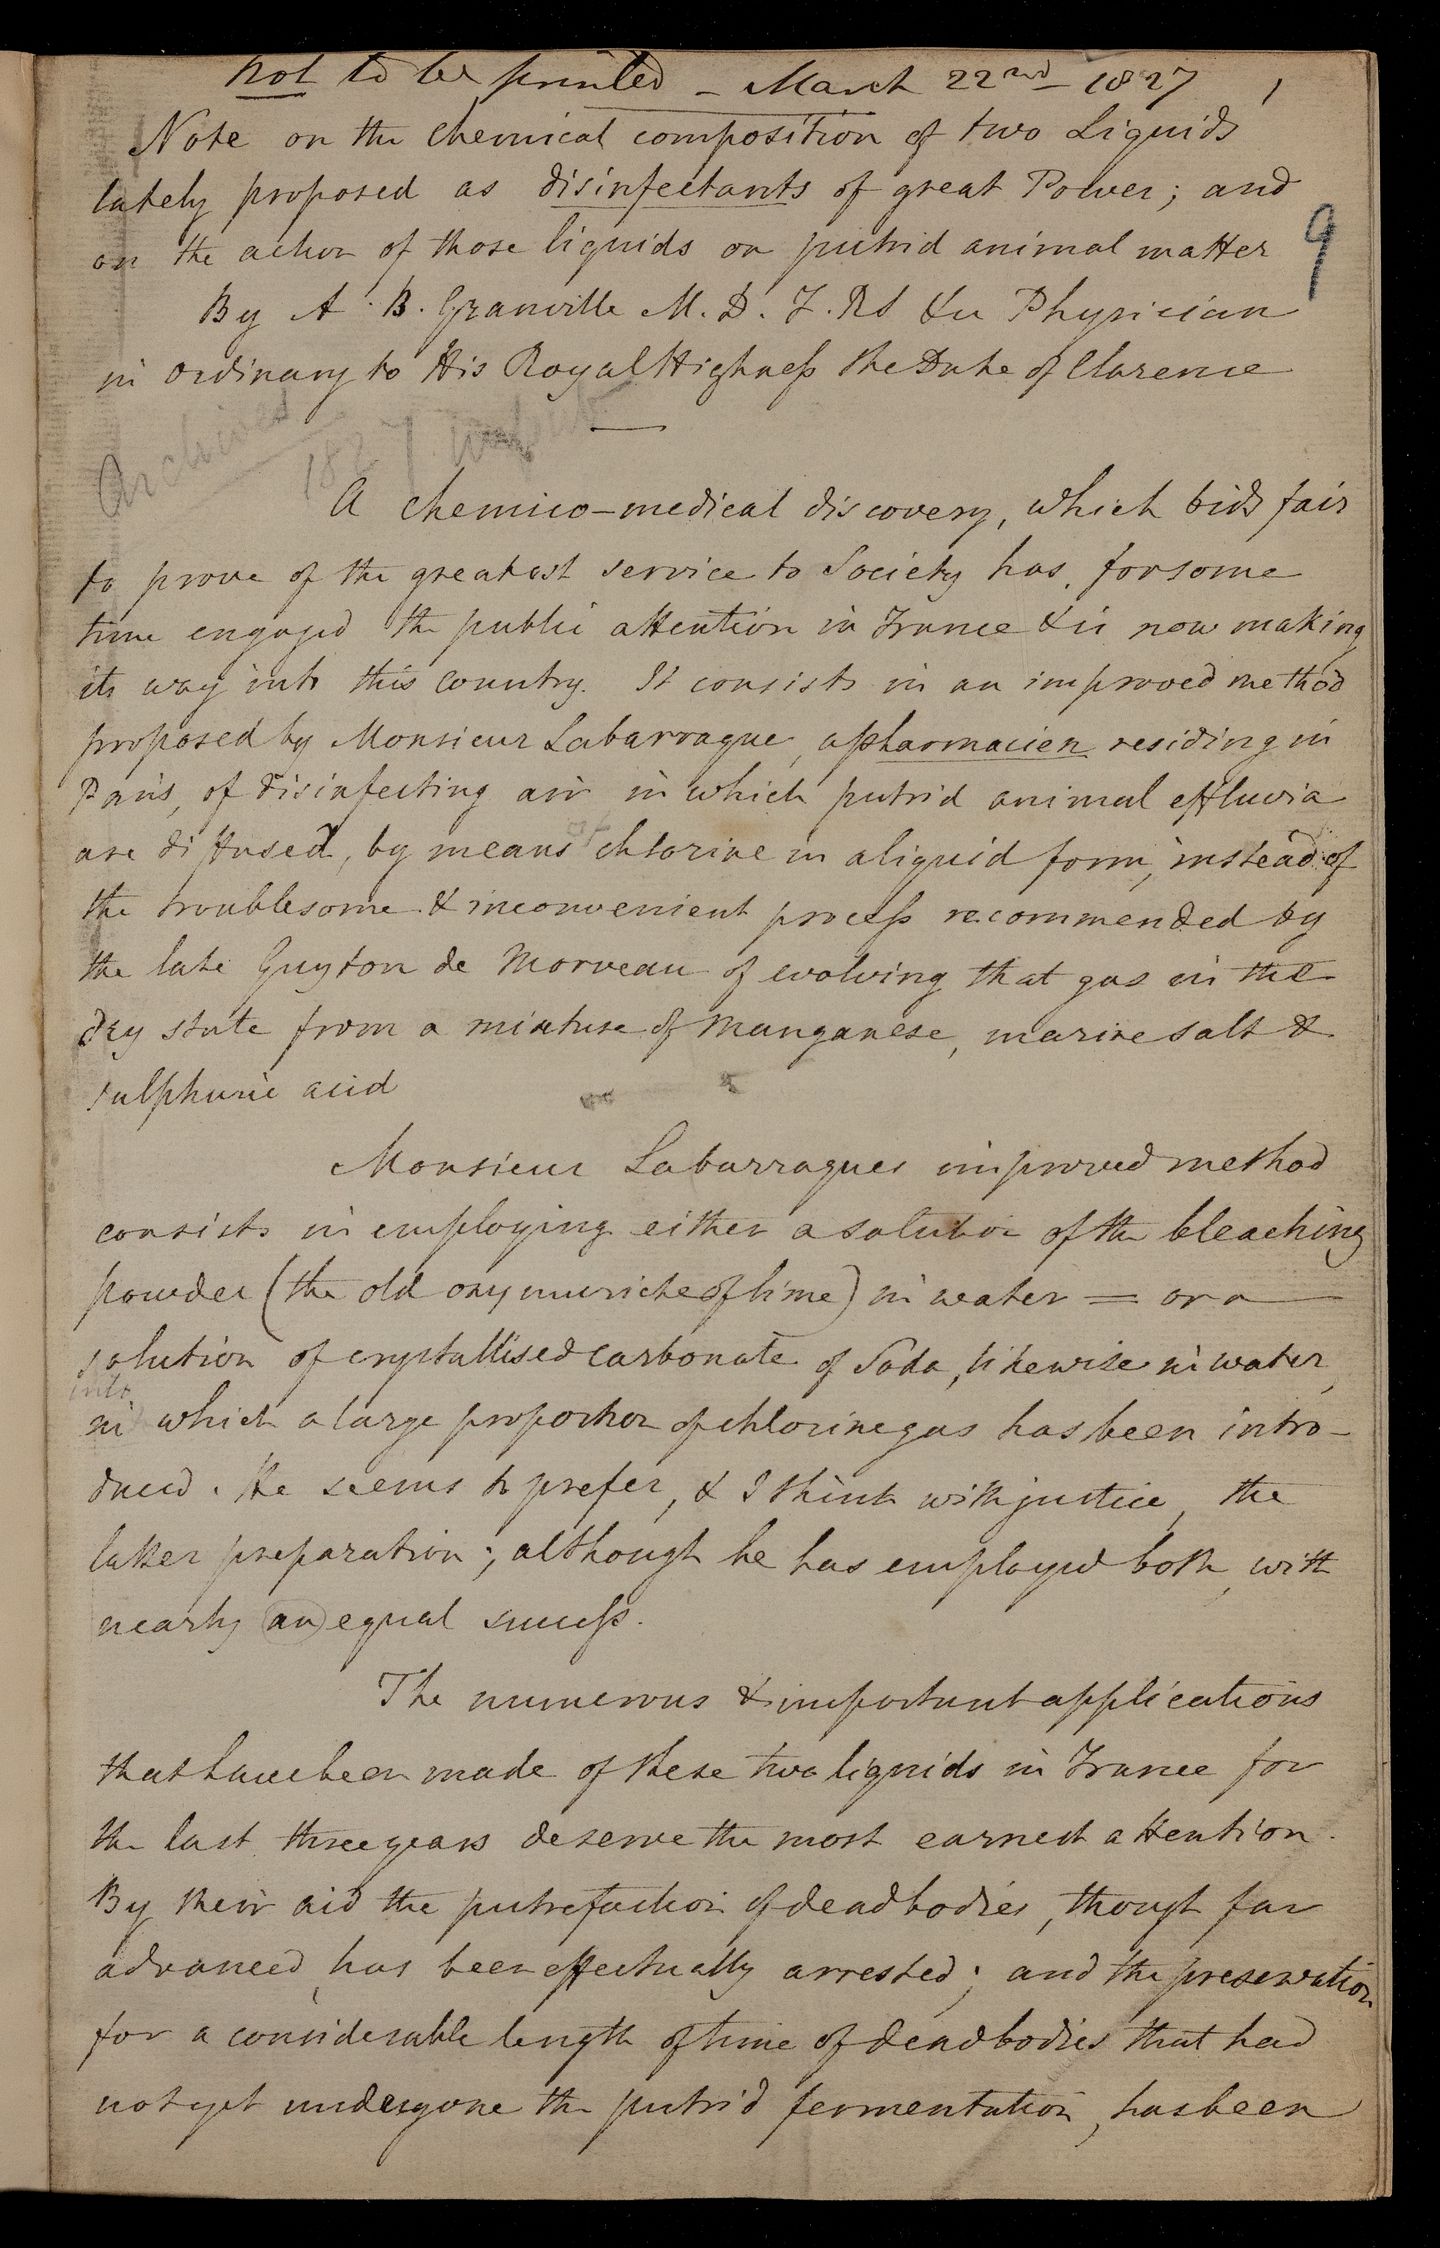 Not to be printed - March 22nd - 1827 1
Note on the Chemical composition of two Liquids
lately proposed as disinfectants of great Power; and
on the action of those liquids on putrid animal matter
9
By A. B. Granville M. D. F. RS &c Physician
in Ordinary to His Royal Highness the Duke of Clarence
Archives
1827
A chemico-medical discovery, which bids fair
to prove of the greatest service to Society has, for some
time engaged the public attention in France & is now making
its way into this country. It consists in an improved method
proposed by Monsieur Labarraque, a pharmacien residing in
Paris, of disinfecting air in which putrid animal effluvia
are diffused, by means of chlorine in a liquid form, instead of
the troublesome & inconvenient process recommended by
the late Guyton de Morveau of evolving that gas in the
dry state from a mixture of Manganese, marine salt &
sulphuric acid
Monsieur Labarraques improved method
consists in employing either a solution of the bleaching
powder (the old oxymuriate of lime) in water = or a
solution of crystallised carbonate of Soda, likewise in water,
into
in which a large proportion of chlorine gas has been intro-
duced. He seems to prefer, & I think with justice, the
latter preparation; although he has employed both, with
nearly an equal success.
The numerous & important applications
that have been made of these two liquids in France for
the last three years deserve the most earnest attention.
By their aid the putrefaction of dead bodies, though far
advanced, has been effectually arrested; and the preservation
for a considerable length of time of dead bodies that had
not yet undergone the putrid fermentation, has been